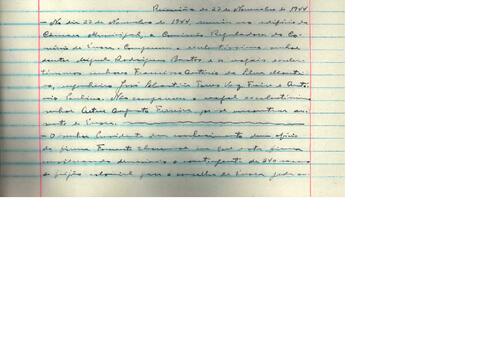 Reunião de 27 de Novembro de 1944
- No dia 27 de Novembro de 1944, reuniu no edifício da
Câmara Municipal, a Comissão Reguladora do Co-
mércio de Évora. Compareceu o excelentíssimo senhor
doutor Miguel Rodrigues Bastos e os vogais excelen-
tíssimos senhores Francisco António da Silva
engenheiro José Sebastião Torres Vaz Freire e Antó-
nio Paulino. Não compareceu o vogal excelentíssimo
senhor Artur Augusto Ferreira por se encontrar au-
sente de Évora.
- O senhor Presidente deu conhecimento dum ofício
da firma em que esta firma
considerando o contingente de 240 sacos
de feijão colonial para o concelho de Évora